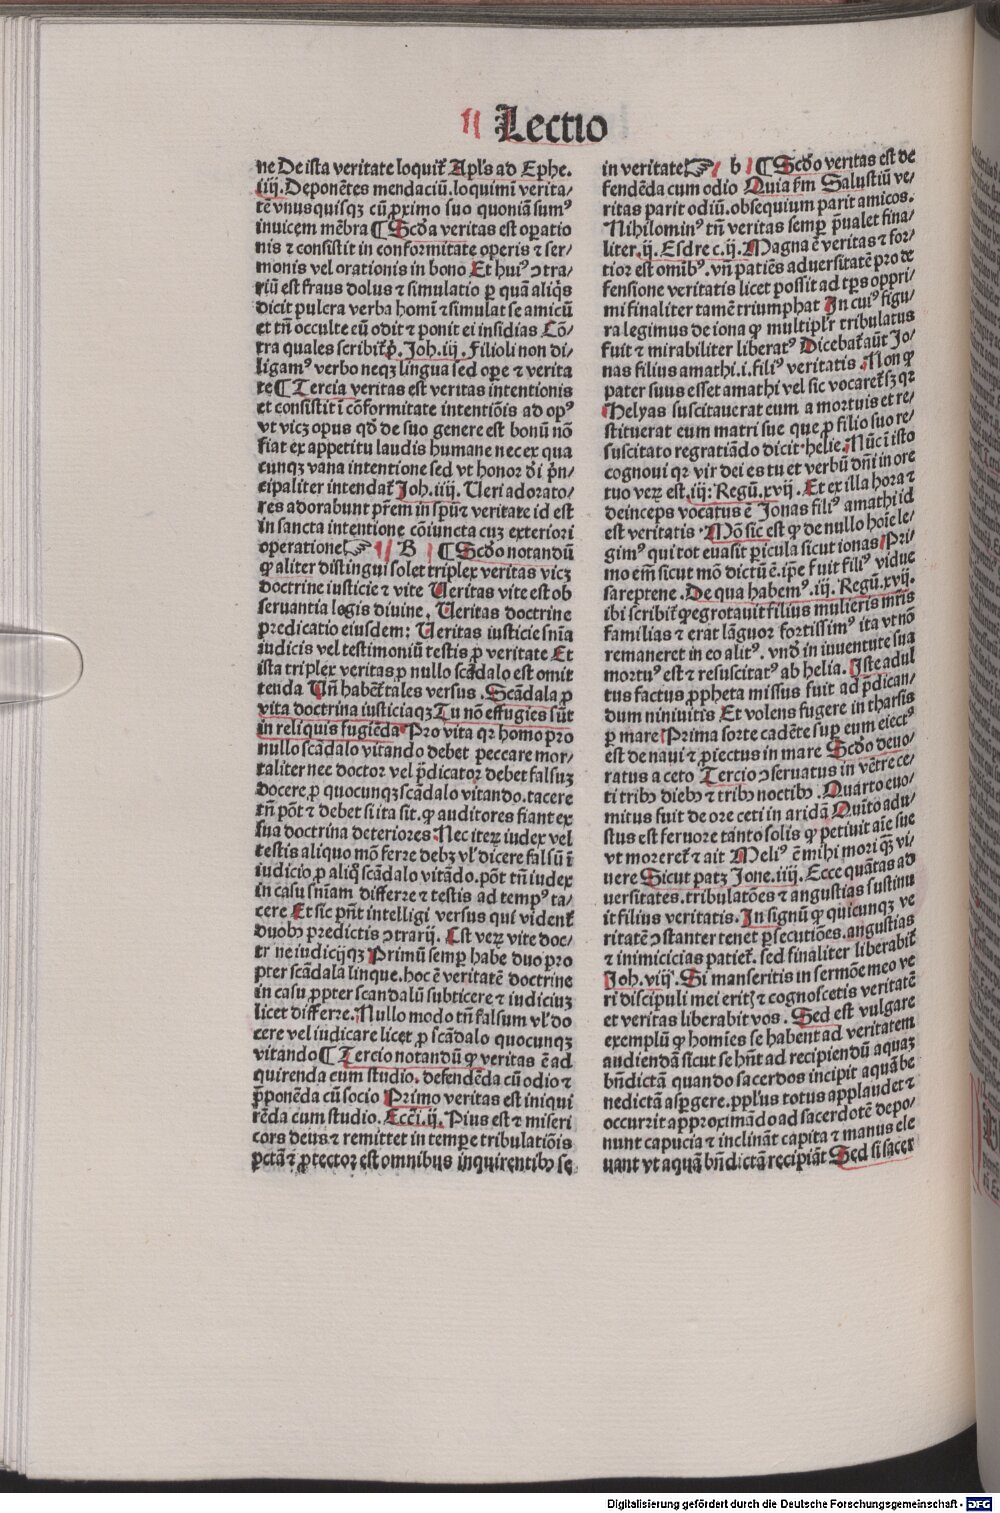 Lectio
ne De ista veritate loquit᷑ Apl's ad Ephe.
iiij. Deponētes mendaciū. loquimī verita/
tē vnusquisqꝫ cū ꝓximo suo quoniā sumꝰ
inuicem mēbra ¶ Scd'a veritas est oꝑatio
nis ⁊ consistit in conformitate operis ⁊ ser-
monis vel orationis in bono Et huiꝰ ꝯtra-
riū est fraus dolus ⁊ simulatio ꝑ quā aliq̄s
dicit pulcra verba homī ⁊ simulat se amicū
et tn̄ occulte eū odit ⁊ ponit ei insidias Cō/
tra quales scribit᷑ p̄. Joh. iij. Filioli non di/
ligamꝰ verbo neqꝫ lingua sed oꝑe ⁊ verita
te ¶ Tercia veritas est veritas intentionis
et consistit ī cōformitate intentiōis ad opꝰ
vt vicꝫ opus qd' de suo genere est bonū nō
fiat ex appetitu laudis humane nec ex qua
cunqꝫ vana intentione sed vt honor d'i p̄n-
cipaliter intendat᷑ Joh. iiij. Ueri adorato/
res adorabunt pr̄em in sp̄u ⁊ veritate id est
in sancta intentione cōiuncta cuꝫ exteriori
operatione ☞ B ¶ Scd'o notandū
ꝙ aliter distingui solet triplex veritas vicꝫ
doctrine iusticie ⁊ vite Ueritas vite est ob
seruantia legis diuine. Ueritas doctrine
predicatio eiusdem: Ueritas iusticie sn̄ia
iudicis vel testimoniū testis ꝓ veritate Et
ista triplex veritas ꝓ nullo scādalo est omit
tenda Un̄ habēt᷑ tales versus. Scādala ꝓ
vita doctrina iusticiaqꝫ Tu nō effugies sūt
in reliquis fugiēda Pro vita qꝛ homo pro
nullo scādalo vitando debet peccare mor-
taliter nec doctor vel p̄dicator debet falsuꝫ
docere ꝓ quocunqꝫ scādalo vitando. tacere
tn̄ pōt ⁊ debet si ita sit. ꝙ auditores fiant ex
sua doctrina deteriores Nec iteꝝ iudex vel
testis aliquo mō ferre debꝫ vl' dicere falsū ī
iudicio ꝓ aliq̄ scādalo vitādo. pōt tn̄ iudex
in casu sn̄iam differre ⁊ testis ad tempꝰ ta/
cere Et sic pn̄t intelligi versus qui vident᷑
duobꝰ predictis ꝯtrarij. Est veꝝ vite doc/
tr ne iudicijqꝫ Primū semꝑ habe duo pro
pter scādala linque. hoc ē veritatē doctrine
in casu ꝓpter scandalū subticere ⁊ iudiciuꝫ
licet differre. Nullo modo tn̄ falsum vl' do
cere vel iudicare licet ꝓ scādalo quocunqꝫ
vitando ¶ Tercio notandū ꝙ veritas ē ad
quirenda cum studio. defendēda cū odio ⁊
p̄ponēda cū socio Primo veritas est inqui
rēda cum studio. Ecc̄i. ij. Pius est ⁊ miseri
cors deus ⁊ remittet in tempe tribulatiōis
pctā ⁊ ꝓtector est omnibus inquirentibꝰ se
in veritate ☞ b ¶ Scd'o veritas est de
fendēda cum odio Quia s̄m Salustiū ve/
ritas parit odiū. obsequium parit amicos.
Nihilominꝰ tn̄ veritas semꝑ p̄ualet fina/
liter. ij. Esdre c. ij. Magna ē veritas ⁊ for/
tior est omībꝰ. vn̄ patiēs aduersitatē pro de
fensione veritatis licet possit ad tp̄s oppri/
mi finaliter tamē triumphat In cuiꝰ figu/
ra legimus de iona ꝙ multipl'r tribulatus
fuit ⁊ mirabiliter liberatꝰ Dicebat᷑ aūt Jo/
nas filius amathi .i. filiꝰ veritatis. Non ꝙ
pater suus esset amathi vel sic vocaret᷑ sꝫ qꝛ
Helyas suscitauerat eum a mortuis et re/
stituerat eum matri sue que ꝓ filio suo re/
suscitato regratiādo dicit helie. Nūc ī isto
cognoui qꝛ vir dei es tu et verbū dn̄i in ore
tuo veꝝ est. iij. Regū. xvij. Et ex illa hora ⁊
deinceps vocatus ē Jonas filiꝰ amathi id
est veritatis. Mō sic est ꝙ de nullo hoīe le/
gimꝰ qui tot euasit ꝑicula sicut ionas Pri/
mo em̄ sicut mō dictū ē. ip̄e fuit filiꝰ vidue
sareptene. De qua habemꝰ. iij. Regū. xvij.
ibi scribit᷑ ꝙ egrotauit filius mulieris mr̄is
familias ⁊ erat lāguor fortissimꝰ ita vt nō
remaneret in eo alitꝰ. vnd' in iuuentute sua
mortuꝰ est ⁊ resuscitatꝰ ab helia. Iste adul
tus factus ꝓpheta missus fuit ad p̄dican/
dum niniuitis Et volens fugere in tharsis
ꝑ mare Prima sorte cadēte suꝑ eum eiectꝰ
est de naui ⁊ ꝓiectus in mare Scd'o deuo/
ratus a ceto Tercio ꝯseruatus in vētre ce/
ti tribꝰ diebꝰ ⁊ tribꝰ noctibꝰ. Quarto euo/
mitus fuit de ore ceti in aridā Quīto adu/
stus est feruore tanto solis ꝙ petiuit aīe sue
vt moreret᷑ ⁊ ait Meliꝰ ē mihi mori qꝫ vi/
uere Sicut patꝫ Jone. iiij. Ecce quātas ad
uersitates. tribulatōes ⁊ angustias sustinu
it filius veritatis. In signū ꝙ quicunqꝫ ve
ritatē ꝯstanter tenet ꝑsecutiōes. angustias
⁊ inimicicias patiet᷑. sed finaliter liberabit᷑
Joh. viij. Si manseritis in sermōe meo ve
ri discipuli mei erit͛ ⁊ cognoscetis veritatē
et veritas liberabit vos. Sed est vulgare
exemplū ꝙ homīes se habent ad veritatem
audiendā sicut se hn̄t ad recipiendū aquaꝫ
bn̄dictā quando sacerdos incipit aquā be
nedictā aspgere. ppl'us totus applaudet ⁊
occurrit approximādo ad sacerdotē depo/
nunt capucia ⁊ inclināt capita ⁊ manus ele
uant vt aquā bn̄dictā recipiāt Sed si sacer
Digitalisierung gefördert durch die Deutsche Forschungsgemeinschaft - DFG